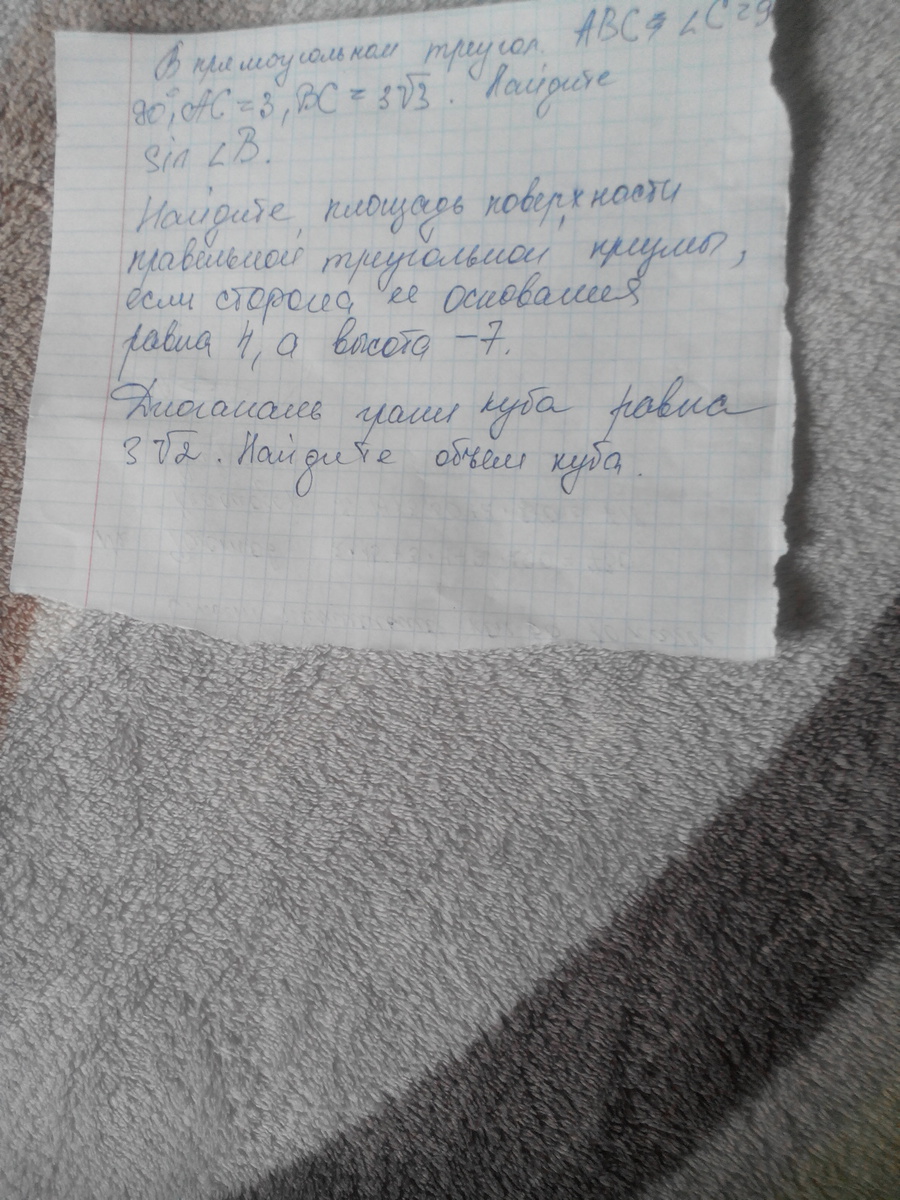 В прямоугольном треугол. ABC ∠C=9
90°, AC = 3, BC = 3√3. Найдите
sin ∠B.
Найдите площадь поверхности
правельной треугольной призмы,
если сторона ее основания
равна 4, а высота – 7.
Диоганаль грани куба равна
3√2. Найдите объем куба.